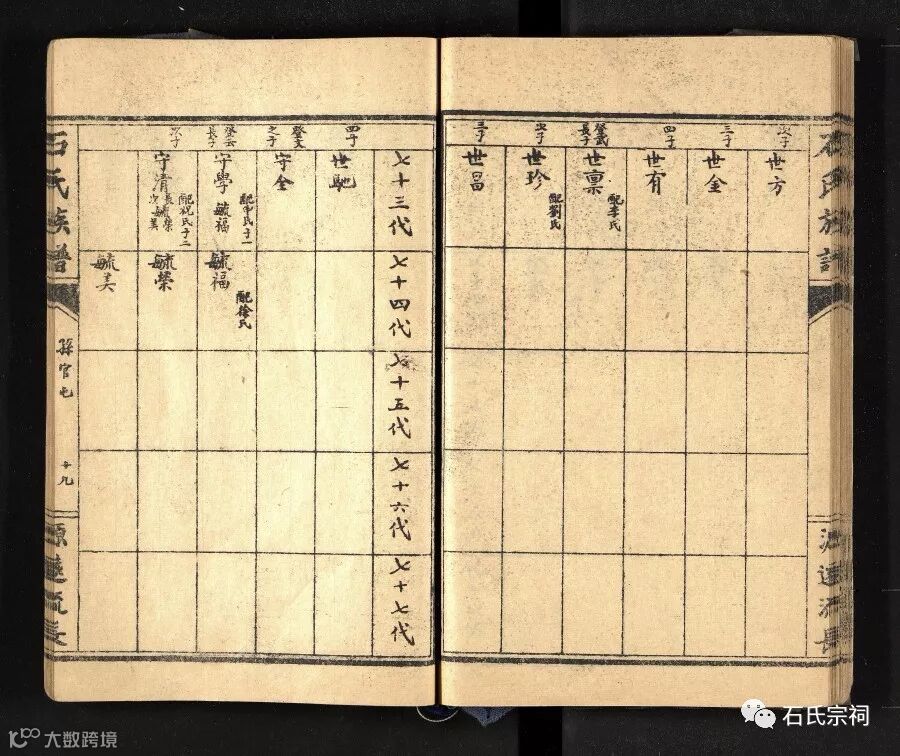 石氏族譜
源遠流長
次子
世方
三子
世金
四子
世有
登武長子
世禀
配李氏
次子
世珍
配劉氏
三子
世昌
七十三代
七十四代
七十五代
七十六代
七十七代
四子
世馳
登文之子
守全
登云長子
守學
配申氏子一
毓福
毓福
配徐氏
次子
守清
配祝氏子二
長毓榮
次毓美
毓榮
毓美
石氏族譜
孫官屯
十九
源遠流長
石氏宗祠
大数跨境